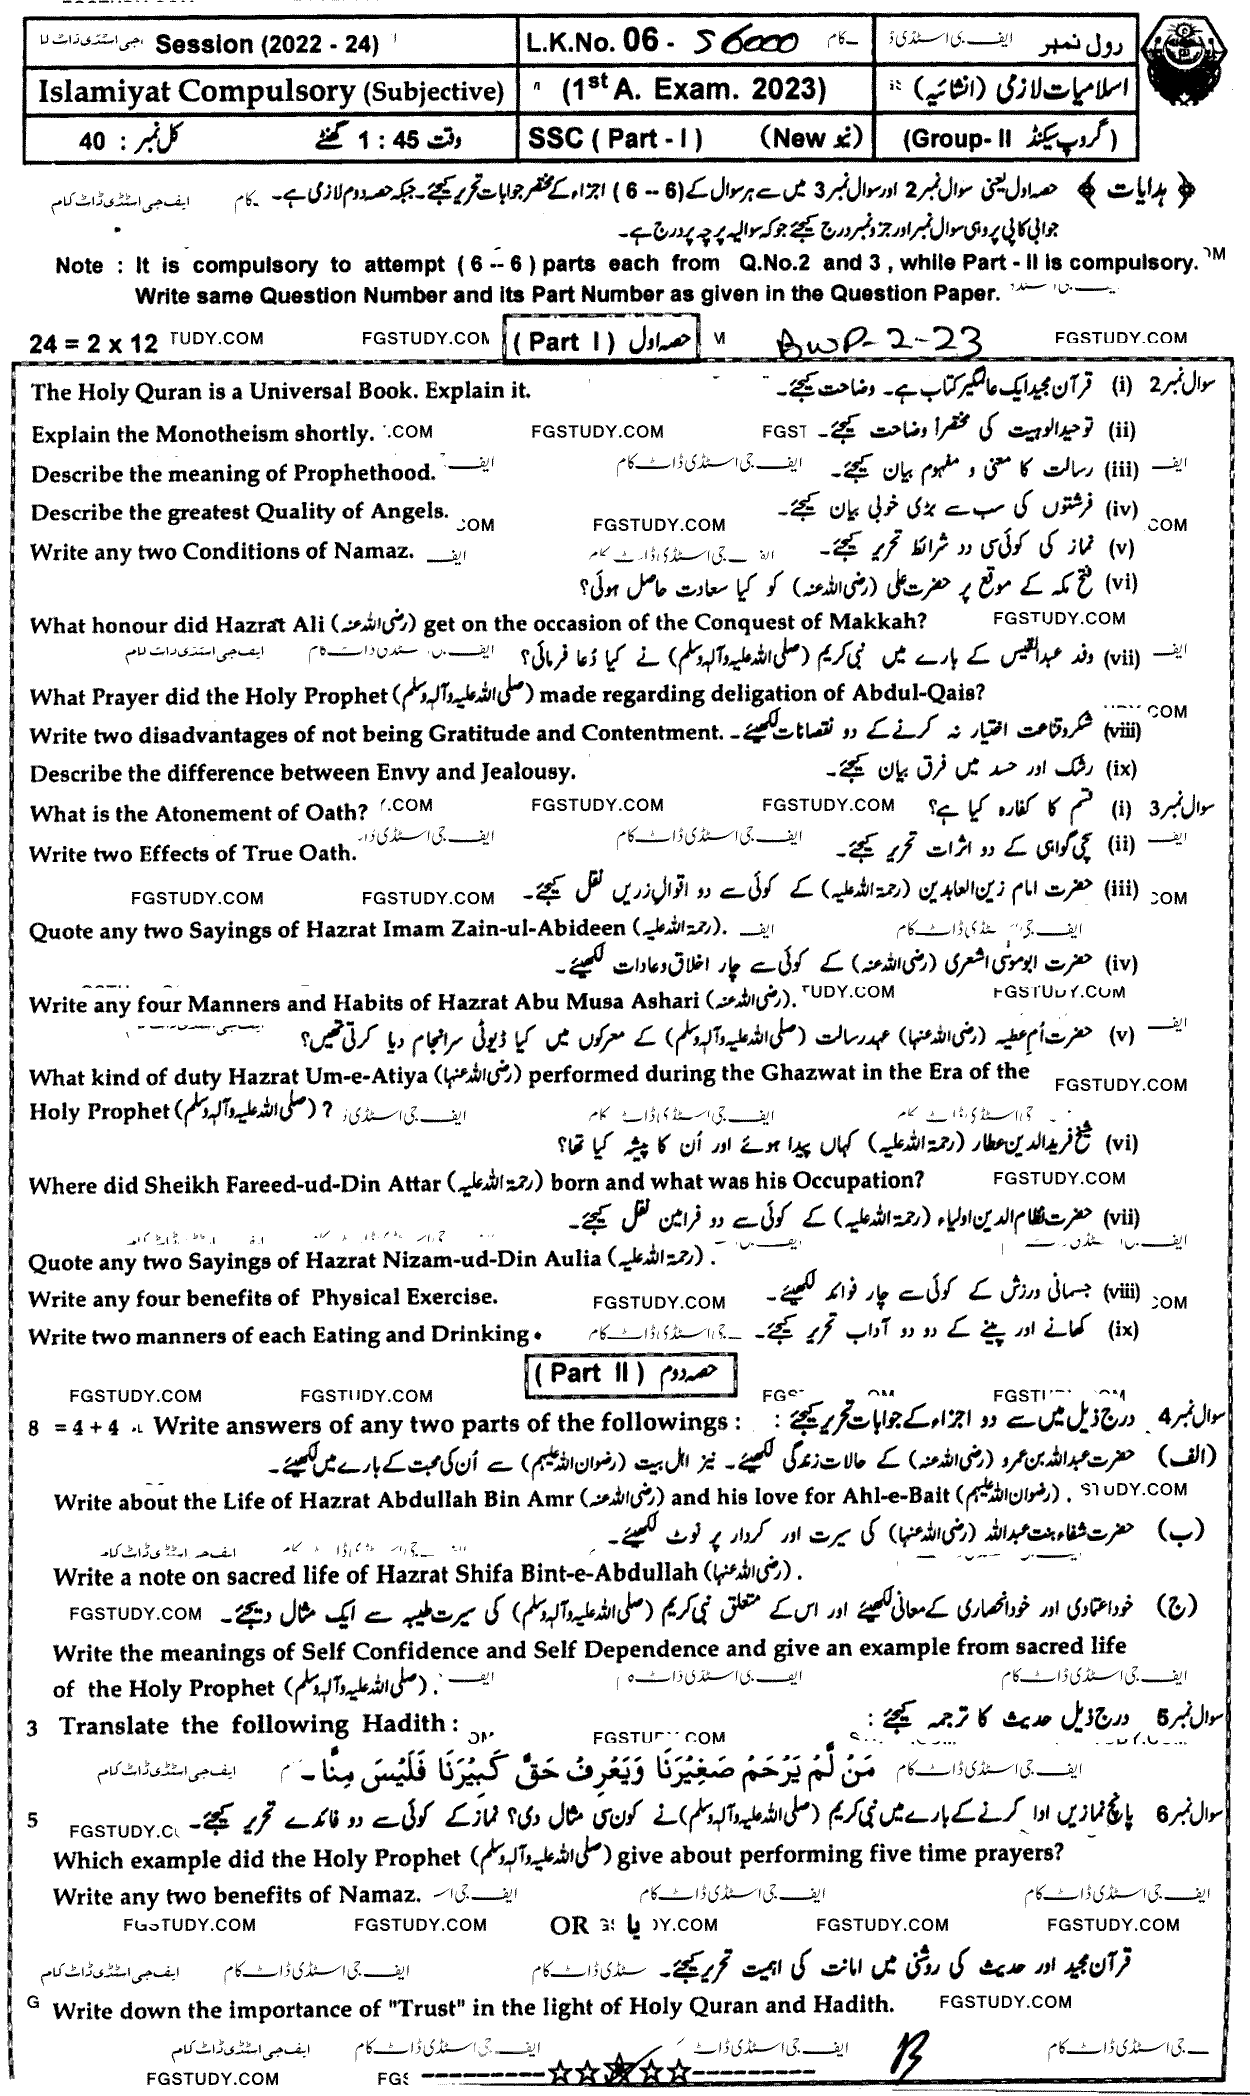 Session (2022 - 24)
L.K.No. 06 - S6000
رول نمبر
Islamiyat Compulsory (Subjective)
(1st A. Exam. 2023)
اسلامیات لازمی (انشائیہ)
کل نمبر : 40
وقت 1 : 45 گھنٹے
SSC ( Part - I )
(New نیو)
(Group- II گروپ سیکنڈ)
﴿ ہدایات ﴾ حصہ اول یعنی سوال نمبر 2 اور سوال نمبر 3 میں سے ہر سوال کے (6 -- 6) اجزاء کے مختصر جوابات تحریر کیجئے۔ جبکہ حصہ دوم لازمی ہے۔
جوابی کاپی پر وہی سوال نمبر اور جزو نمبر درج کیجئے جو کہ سوالیہ پرچہ پر درج ہے۔
Note : It is compulsory to attempt ( 6 -- 6 ) parts each from Q.No.2 and 3 , while Part - II is compulsory.
Write same Question Number and its Part Number as given in the Question Paper.
24 = 2 x 12
( Part I ) حصہ اول
BWP-2-23
FGSTUDY.COM
The Holy Quran is a Universal Book. Explain it.
سوال نمبر 2 (i) قرآن مجید ایک عالمگیر کتاب ہے۔ وضاحت کیجئے۔
Explain the Monotheism shortly.
(ii) توحید الوہیت کی مختصراً وضاحت کیجئے۔
Describe the meaning of Prophethood.
(iii) رسالت کا معنی و مفہوم بیان کیجئے۔
Describe the greatest Quality of Angels.
(iv) فرشتوں کی سب سے بڑی خوبی بیان کیجئے۔
Write any two Conditions of Namaz.
(v) نماز کی کوئی سی دو شرائط تحریر کیجئے۔
(vi) فتح مکہ کے موقع پر حضرت علی (رضی اللہ عنہ) کو کیا سعادت حاصل ہوئی؟
What honour did Hazrat Ali (رضی اللہ عنہ) get on the occasion of the Conquest of Makkah?
(vii) وفد عبدالقیس کے بارے میں نبی کریم (صلی اللہ علیہ وآلہ وسلم) نے کیا دُعا فرمائی؟
What Prayer did the Holy Prophet (صلی اللہ علیہ وآلہ وسلم) made regarding deligation of Abdul-Qais?
Write two disadvantages of not being Gratitude and Contentment.
(viii) شکر و قناعت اختیار نہ کرنے کے دو نقصانات لکھیئے۔
Describe the difference between Envy and Jealousy.
(ix) رشک اور حسد میں فرق بیان کیجئے۔
What is the Atonement of Oath?
سوال نمبر 3 (i) قسم کا کفارہ کیا ہے؟
Write two Effects of True Oath.
(ii) سچی گواہی کے دو اثرات تحریر کیجئے۔
(iii) حضرت امام زین العابدین (رحمۃ اللہ علیہ) کے کوئی سے دو اقوال زریں نقل کیجئے۔
Quote any two Sayings of Hazrat Imam Zain-ul-Abideen (رحمۃ اللہ علیہ).
(iv) حضرت ابو موسیٰ اشعری (رضی اللہ عنہ) کے کوئی سے چار اخلاق و عادات لکھیئے۔
Write any four Manners and Habits of Hazrat Abu Musa Ashari (رضی اللہ عنہ).
(v) حضرت اُم عطیہ (رضی اللہ عنہا) عہد رسالت (صلی اللہ علیہ وآلہ وسلم) کے معرکوں میں کیا ڈیوٹی سرانجام دیا کرتی تھیں؟
What kind of duty Hazrat Um-e-Atiya (رضی اللہ عنہا) performed during the Ghazwat in the Era of the
Holy Prophet (صلی اللہ علیہ وآلہ وسلم) ?
(vi) شیخ فرید الدین عطار (رحمۃ اللہ علیہ) کہاں پیدا ہوئے اور اُن کا پیشہ کیا تھا؟
Where did Sheikh Fareed-ud-Din Attar (رحمۃ اللہ علیہ) born and what was his Occupation?
(vii) حضرت نظام الدین اولیاء (رحمۃ اللہ علیہ) کے کوئی سے دو فرامین نقل کیجئے۔
Quote any two Sayings of Hazrat Nizam-ud-Din Aulia (رحمۃ اللہ علیہ) .
Write any four benefits of Physical Exercise.
(viii) جسمانی ورزش کے کوئی سے چار فوائد لکھیئے۔
Write two manners of each Eating and Drinking.
(ix) کھانے اور پینے کے دو دو آداب تحریر کیجئے۔
( Part II ) حصہ دوم
8 = 4 + 4 Write answers of any two parts of the followings :
سوال نمبر 4 درج ذیل میں سے دو اجزاء کے جوابات تحریر کیجئے :
(الف) حضرت عبداللہ بن عمرو (رضی اللہ عنہ) کے حالات زندگی لکھیئے۔ نیز اہل بیت (رضوان اللہ علیہم) سے اُن کی محبت کے بارے میں لکھیئے۔
Write about the Life of Hazrat Abdullah Bin Amr (رضی اللہ عنہ) and his love for Ahl-e-Bait (رضوان اللہ علیہم) .
(ب) حضرت شفاء بنت عبداللہ (رضی اللہ عنہا) کی سیرت اور کردار پر نوٹ لکھیئے۔
Write a note on sacred life of Hazrat Shifa Bint-e-Abdullah (رضی اللہ عنہا) .
(ج) خود اعتمادی اور خود انحصاری کے معانی لکھیئے اور اس کے متعلق نبی کریم (صلی اللہ علیہ وآلہ وسلم) کی سیرت طیبہ سے ایک مثال دیجئے۔
Write the meanings of Self Confidence and Self Dependence and give an example from sacred life
of the Holy Prophet (صلی اللہ علیہ وآلہ وسلم) .
3 Translate the following Hadith :
سوال نمبر 5 درج ذیل حدیث کا ترجمہ کیجئے :
مَنْ لَّمْ يَرْحَمْ صَغِيْرَنَا وَيَعْرِفْ حَقَّ كَبِيْرَنَا فَلَيْسَ مِنَّا۔
5
سوال نمبر 6 پانچ نمازیں ادا کرنے کے بارے میں نبی کریم (صلی اللہ علیہ وآلہ وسلم) نے کون سی مثال دی؟ نماز کے کوئی سے دو فائدے تحریر کیجئے۔
Which example did the Holy Prophet (صلی اللہ علیہ وآلہ وسلم) give about performing five time prayers?
Write any two benefits of Namaz.
OR یا
قرآن مجید اور حدیث کی روشنی میں امانت کی اہمیت تحریر کیجئے۔
Write down the importance of "Trust" in the light of Holy Quran and Hadith.
FGSTUDY.COM